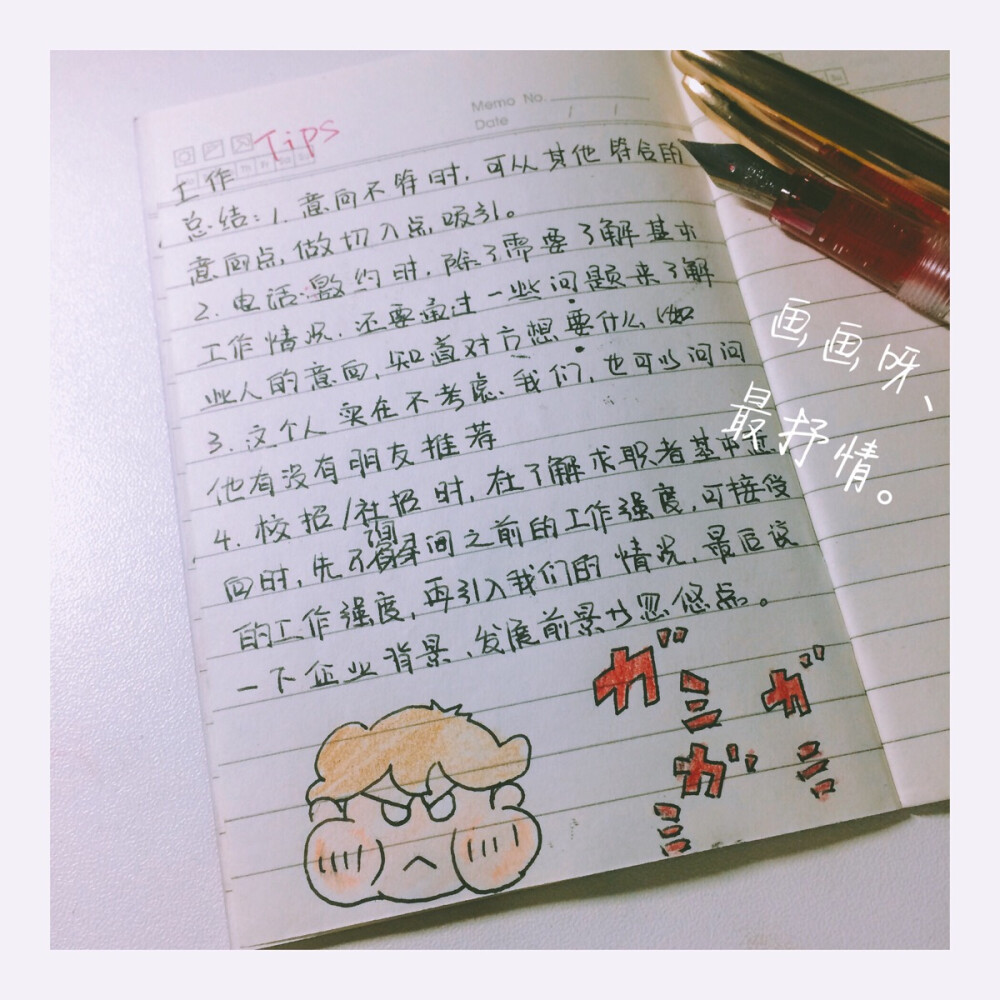 Memo No.
Date / /
Tips
工作
总结:1.意向不符时,可从其他符合的
意向点,做切入点吸引。
2.电话邀约时,除了需要了解基本
工作情况,还要通过一些问题来了解
些人的意向,知道对方想要什么
3.这个人实在不考虑我们,也可以问问
他有没有朋友推荐
4.校招/社招时,在了解求职者基本
向时,先 问之前的工作强度,可接受
的工作强度,再引入我们的情况,最后谈
一下企业背景、发展前景 忽悠点。
ガミガミガミ
画画呀、
最抒情。